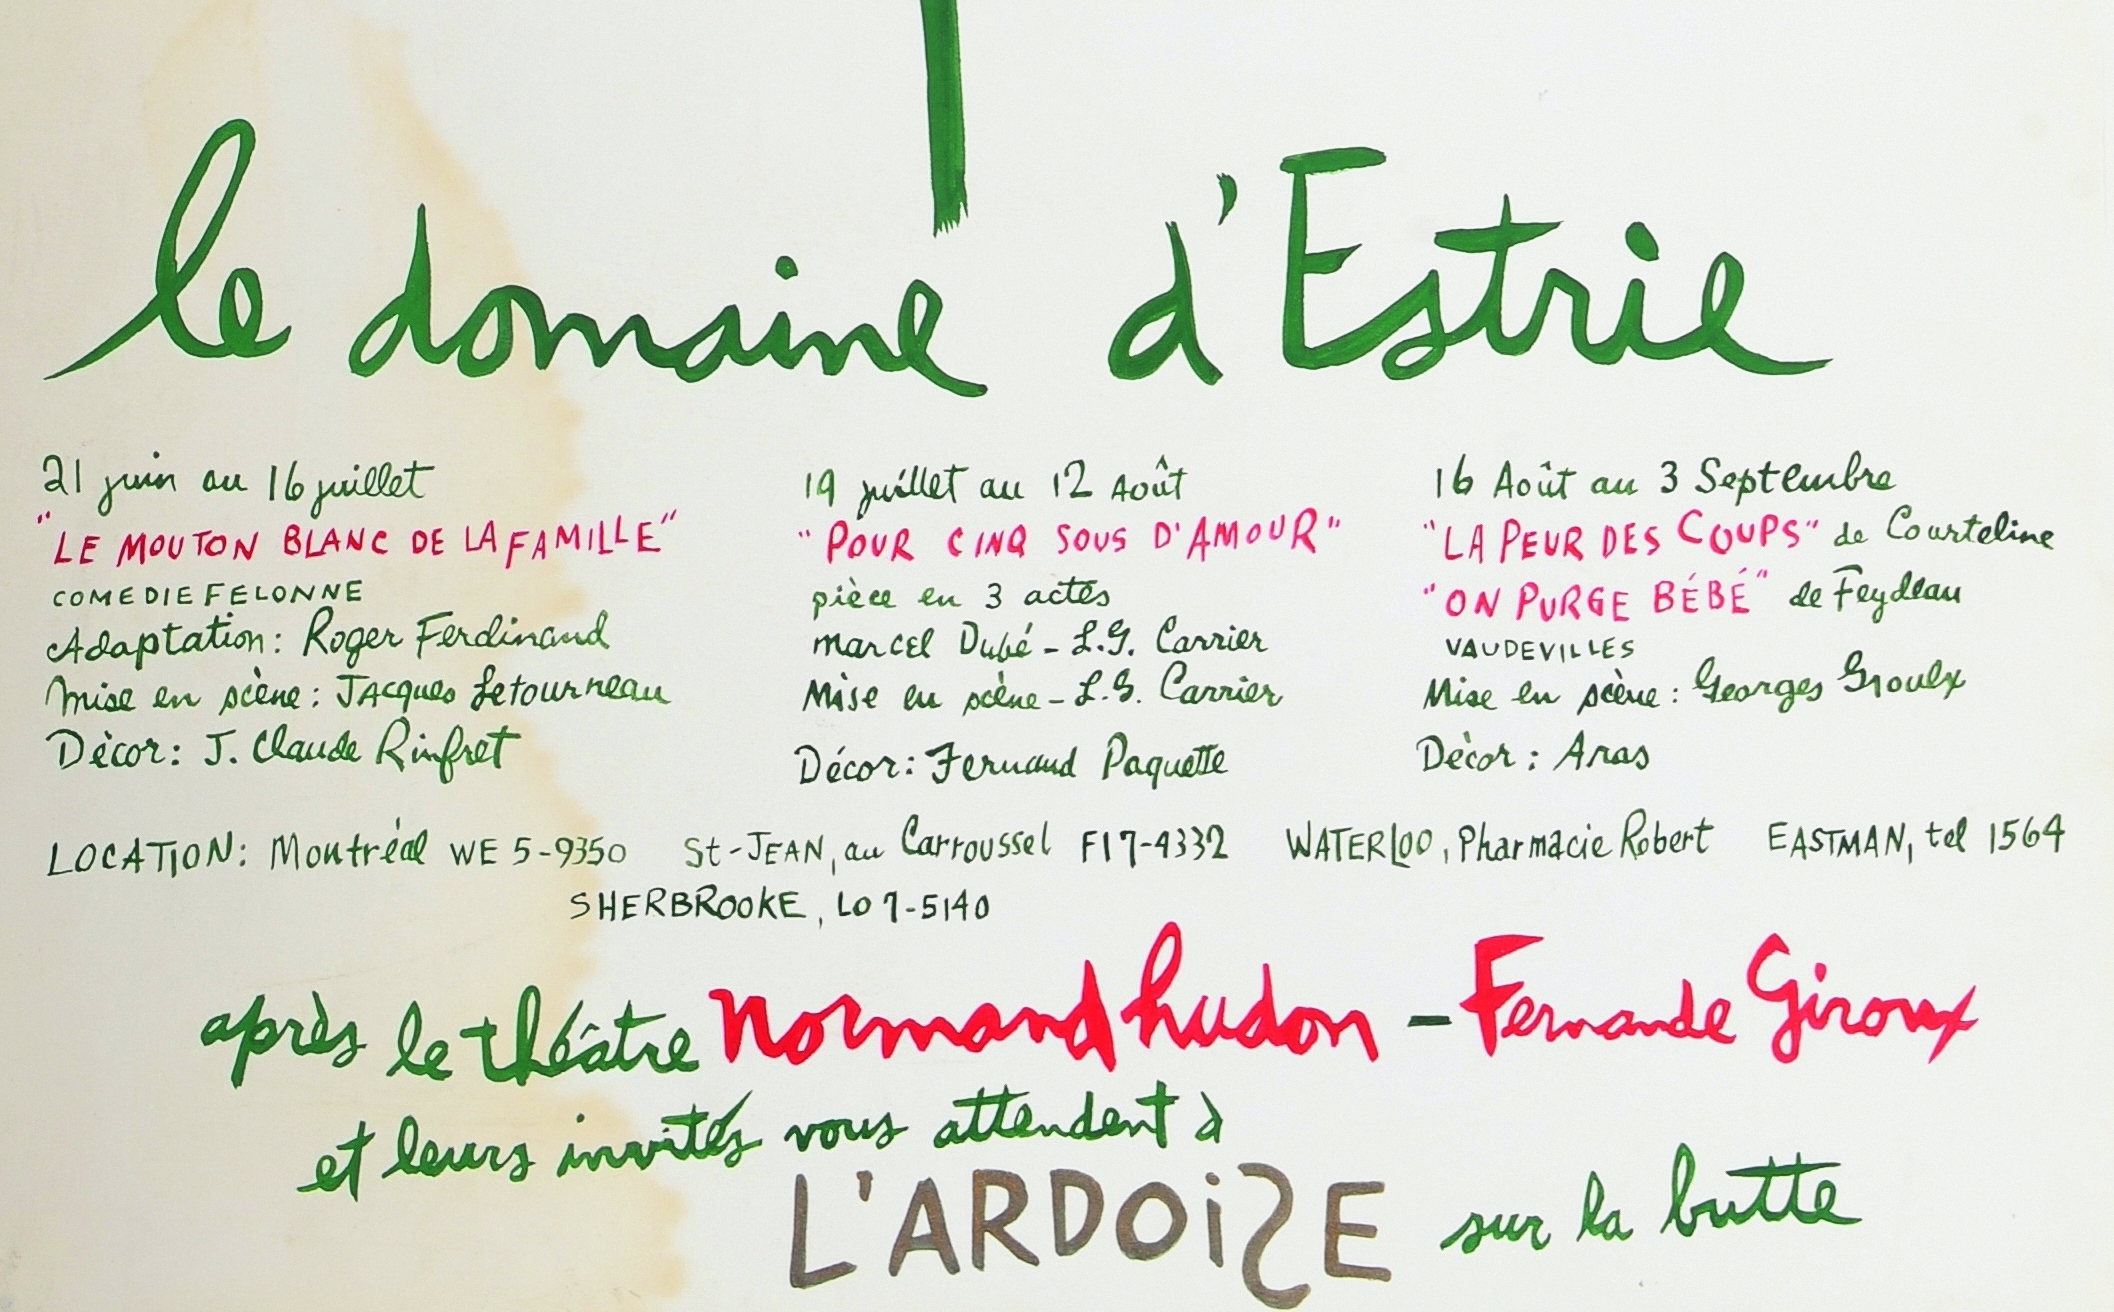 le domaine d'Estrie
21 juin au 16 juillet
"LE MOUTON BLANC DE LA FAMILLE"
COMEDIE FELONNE
Adaptation: Roger Ferdinand
Mise en scène: JAcques Letourneau
Décor: J. Claude Rinfret
19 juillet au 12 Août
"POUR CINQ SOUS D'AMOUR"
pièce en 3 actes
marcel Dubé - L.G. Carrier
Mise en scène - L.G. Carrier
Décor: Fernand Paquette
16 Août au 3 Septembre
"LA PEUR DES COUPS" de Courteline
"ON PURGE BÉBÉ" de Feydeau
VAUDEVILLES
Mise en scène: Georges Groulx
Décor: Aras
LOCATION: Montréal WE 5-9350 St-JEAN, au Carroussel FI 7-4332 WATERLOO, Pharmacie Robert EASTMAN, tel 1564
SHERBROOKE, LO 7-5140
après le théâtre Normand hudon - Fernande Giroux
et leurs invités vous attendent à
L'ARDOISE sur la butte